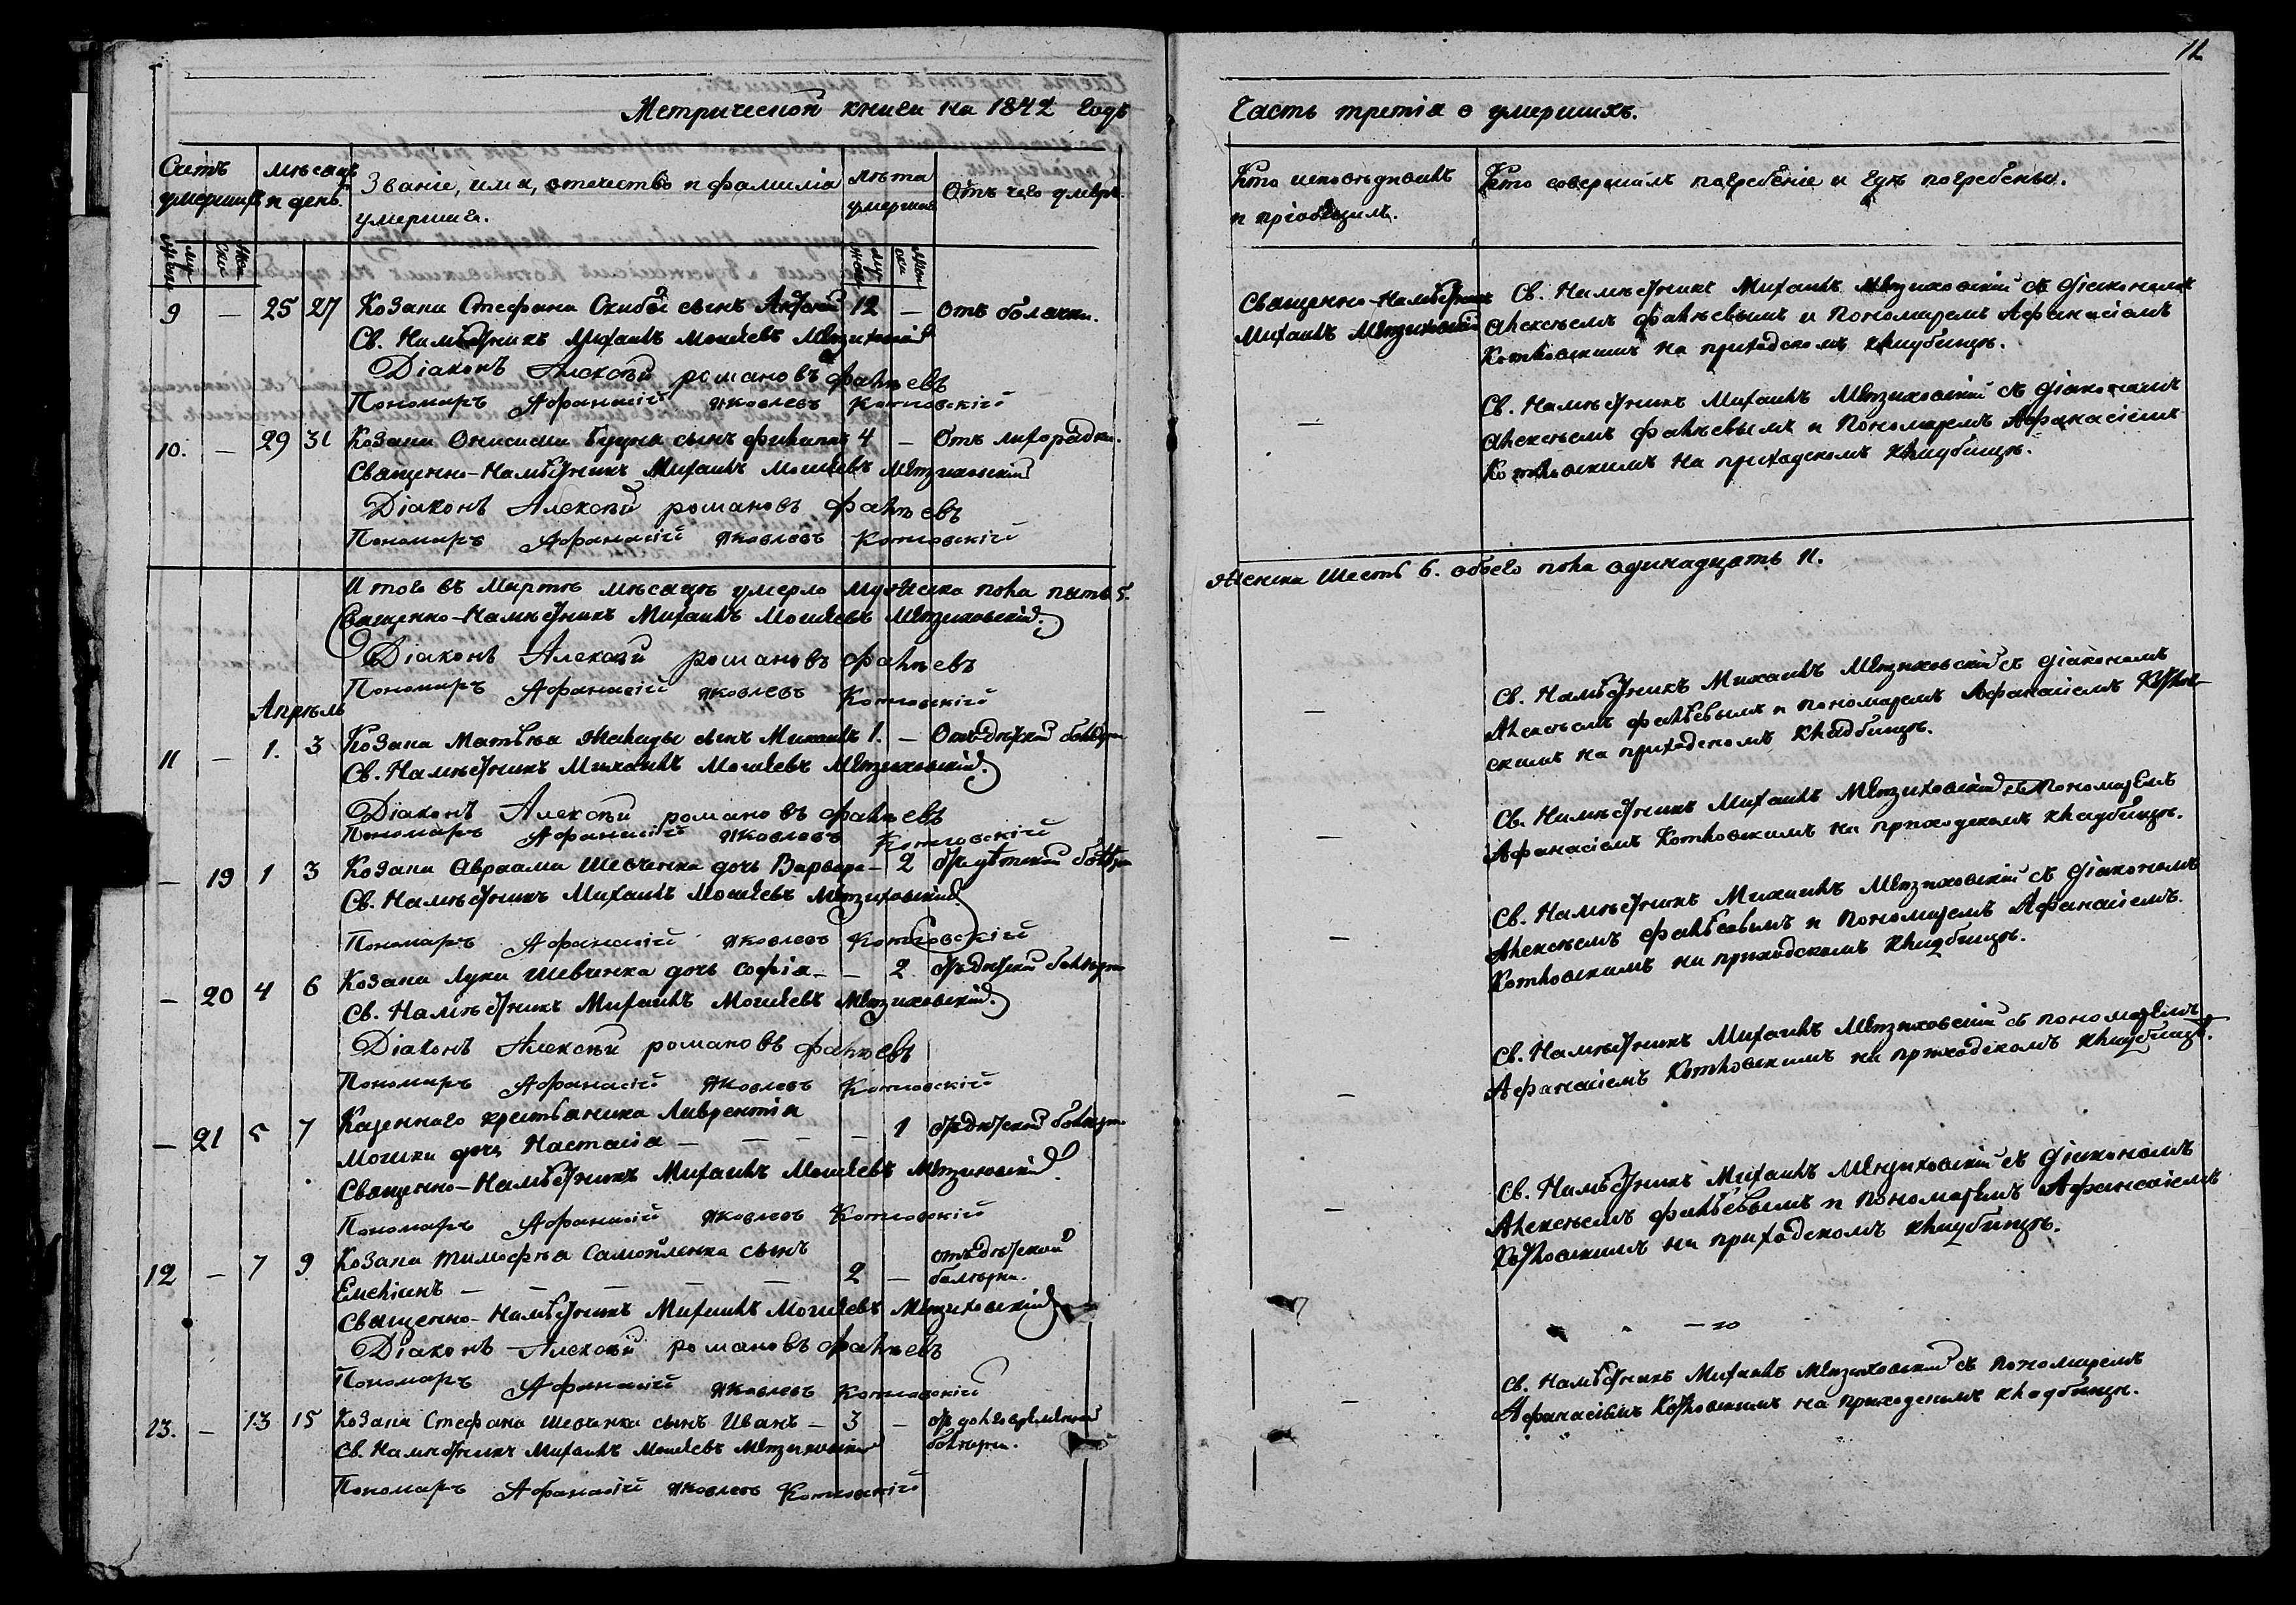 12
Метрической книги на 1842 годъ
Часть третія о умершихъ.
Счетъ умершихъ
мѣсяцъ и день.
Званіе, имя, отечество и фамилія
умершаго.
лѣта умершаго
Отъ чего умеръ.
Муж. Жен.
Муж. Жен.
9 — 25 27 Козака Стефана Скибы сынъ Андрей 12 — отъ болячки.
Св. Намѣстникъ Михаилъ Моисеевъ
Діаконъ Алексѣй романовъ Фалѣевъ
Пономаръ Афанасій Яковлевъ Котловскій
10. — 29 31 Козака Онисима сынъ Филипъ 4 — Отъ лихорадки.
Священно-Намѣстникъ Михаилъ Моисеевъ
Діаконъ Алексѣй романовъ Фалѣевъ
Пономаръ Афанасій Яковлевъ Котловскій
Итого въ Мартѣ мѣсяцѣ умерло мужеска пола пять 5.
Священно-Намѣстникъ Михаилъ Моисеевъ
Діаконъ Алексѣй романовъ Фалѣевъ
Пономаръ Афанасій Яковлевъ Котловскій
Апрѣль
11 — 1. 3 Козака Матвѣя сынъ Михаилъ 1. — Отъ дѣтской болѣзни
Св. Намѣстникъ Михаилъ Моисеевъ
Діаконъ Алексѣй романовъ Фалѣевъ
Пономаръ Афанасій Яковлевъ Котловскій
— 19 1 3 Козака Авраама Шевченка дочь Варвара — 2 отъ дѣтской болѣзни
Св. Намѣстникъ Михаилъ Моисеевъ
Пономаръ Афанасій Яковлевъ Котловскій
— 20 4 6 Козака Луки Шевченка дочь Софія — — 2 отъ дѣтской болѣзни
Св. Намѣстникъ Михаилъ Моисеевъ
Діаконъ Алексѣй романовъ Фалѣевъ
Пономаръ Афанасій Яковлевъ Котловскій
— 21 5 7 Казенного крестьянина Лаврентія
Мошки дочь Настасія — — — — 1 отъ дѣтской болѣзни
Священно-Намѣстникъ Михаилъ Моисеевъ
Пономаръ Афанасій Яковлевъ Котловскій
12 — 7 9 Козака Тимофѣя Самойленка сынъ
Емеліанъ — — — — 2 — отъ дѣтской
болѣзни.
Священно-Намѣстникъ Михаилъ Моисеевъ
Діаконъ Алексѣй романовъ Фалѣевъ
Пономаръ Афанасій Яковлевъ Котловскій
13. — 13 15 Козака Стефана Шевченка сынъ Иванъ — 3 — отъ долговременной
болѣзни.
Св. Намѣстникъ Михаилъ Моисеевъ
Пономаръ Афанасій Яковлевъ Котловскій
Кто исповѣдывалъ
и пріобщилъ.
Кто совершалъ погребеніе и гдѣ погребены.
Священно-Намѣстникъ
Михаилъ
Св. Намѣстникъ Михаилъ съ діакономъ
Алексѣемъ Фалѣевымъ и Пономаремъ Афанасіемъ
Котловскимъ на приходскомъ кладбищѣ.
—
Св. Намѣстникъ Михаилъ съ діакономъ
Алексѣемъ Фалѣевымъ и Пономаремъ Афанасіемъ
Котловскимъ на приходскомъ кладбищѣ.
Женска шесть 6. обоего пола одинадцать 11.
—
Св. Намѣстникъ Михаилъ съ діакономъ
Алексѣемъ Фалѣевымъ и пономаремъ Афанасіемъ Котлов-
скимъ на приходскомъ кладбищѣ.
—
Св. Намѣстникъ Михаилъ съ Пономаремъ
Афанасіемъ Котловскимъ на приходскомъ кладбищѣ.
—
Св. Намѣстникъ Михаилъ съ діакономъ
Алексѣемъ Фалѣевымъ и Пономаремъ Афанасіемъ
Котловскимъ на приходскомъ кладбищѣ.
—
Св. Намѣстникъ Михаилъ съ пономаремъ
Афанасіемъ Котловскимъ на приходскомъ кладбищѣ.
—
Св. Намѣстникъ Михаилъ съ діакономъ
Алексѣемъ Фалѣевымъ и Пономаремъ Афанасіемъ
Котловскимъ на приходскомъ кладбищѣ.
—
Св. Намѣстникъ Михаилъ съ пономаремъ
Афанасіемъ Котловскимъ на приходскомъ кладбищѣ.